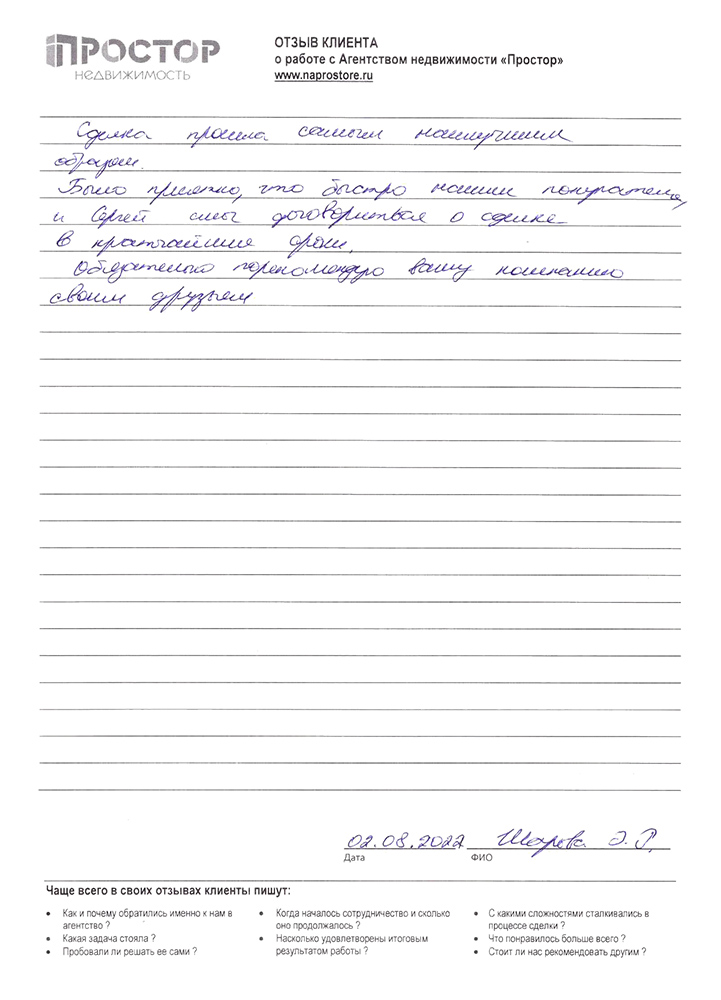 ПРОСТОР
НЕДВИЖИМОСТЬ
ОТЗЫВ КЛИЕНТА
о работе с Агентством недвижимости «Простор»
www.naprostore.ru
Сделка прошла самым наилучшим
образом.
Было приятно, что быстро нашли покупателя,
и Сергей смог договориться о сделке
в кратчайшие сроки.
Обязательно порекомендую вашу компанию
своим друзьям
02.08.2022 Шарова Э. Р.
Дата ФИО
Чаще всего в своих отзывах клиенты пишут:
• Как и почему обратились именно к нам в
агентство ?
• Какая задача стояла ?
• Пробовали ли решать ее сами ?
• Когда началось сотрудничество и сколько
оно продолжалось ?
• Насколько удовлетворены итоговым
результатом работы ?
• С какими сложностями сталкивались в
процессе сделки ?
• Что понравилось больше всего ?
• Стоит ли нас рекомендовать другим ?